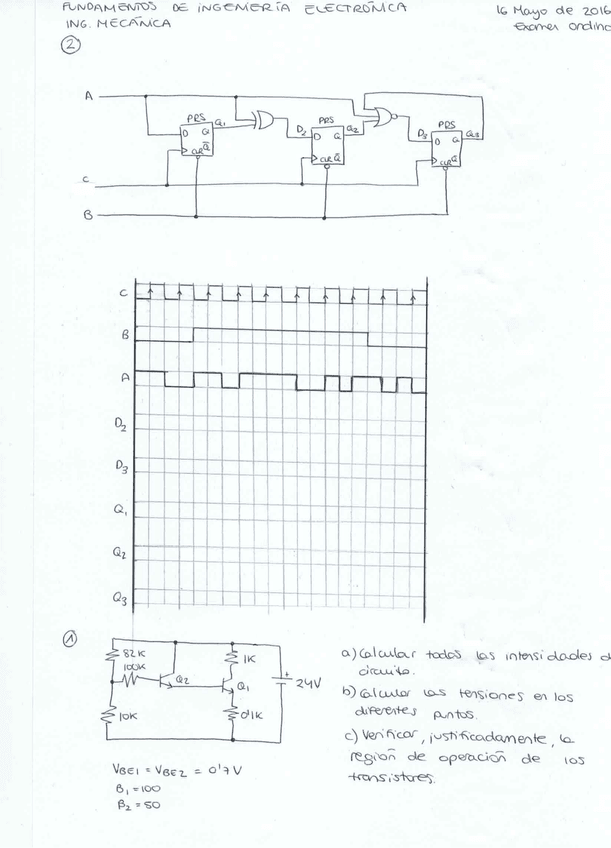 FUNDAMENTOS DE INGENIERÍA ELECTRÓNICA
16 Mayo de 2016
ING. MECÁNICA
Examen Ordina
2
A
PRS
Q1
D Q
CLR Q̅
D2
PRS
Q2
D Q
CLR Q̅
D3
PRS
Q3
D Q
CLR Q̅
C
B
C
B
A
D2
D3
Q1
Q2
Q3
1
82K
100K
Q2
1K
Q1
24V
10K
0'1K
VBE1 = VBE2 = 0'7V
β1 = 100
β2 = 50
a) Calcular todas las intensidades d
circuito.
b) Calcular las tensiones en los
diferentes puntos.
c) Verificar, justificadamente, la
región de operación de los
transistores.